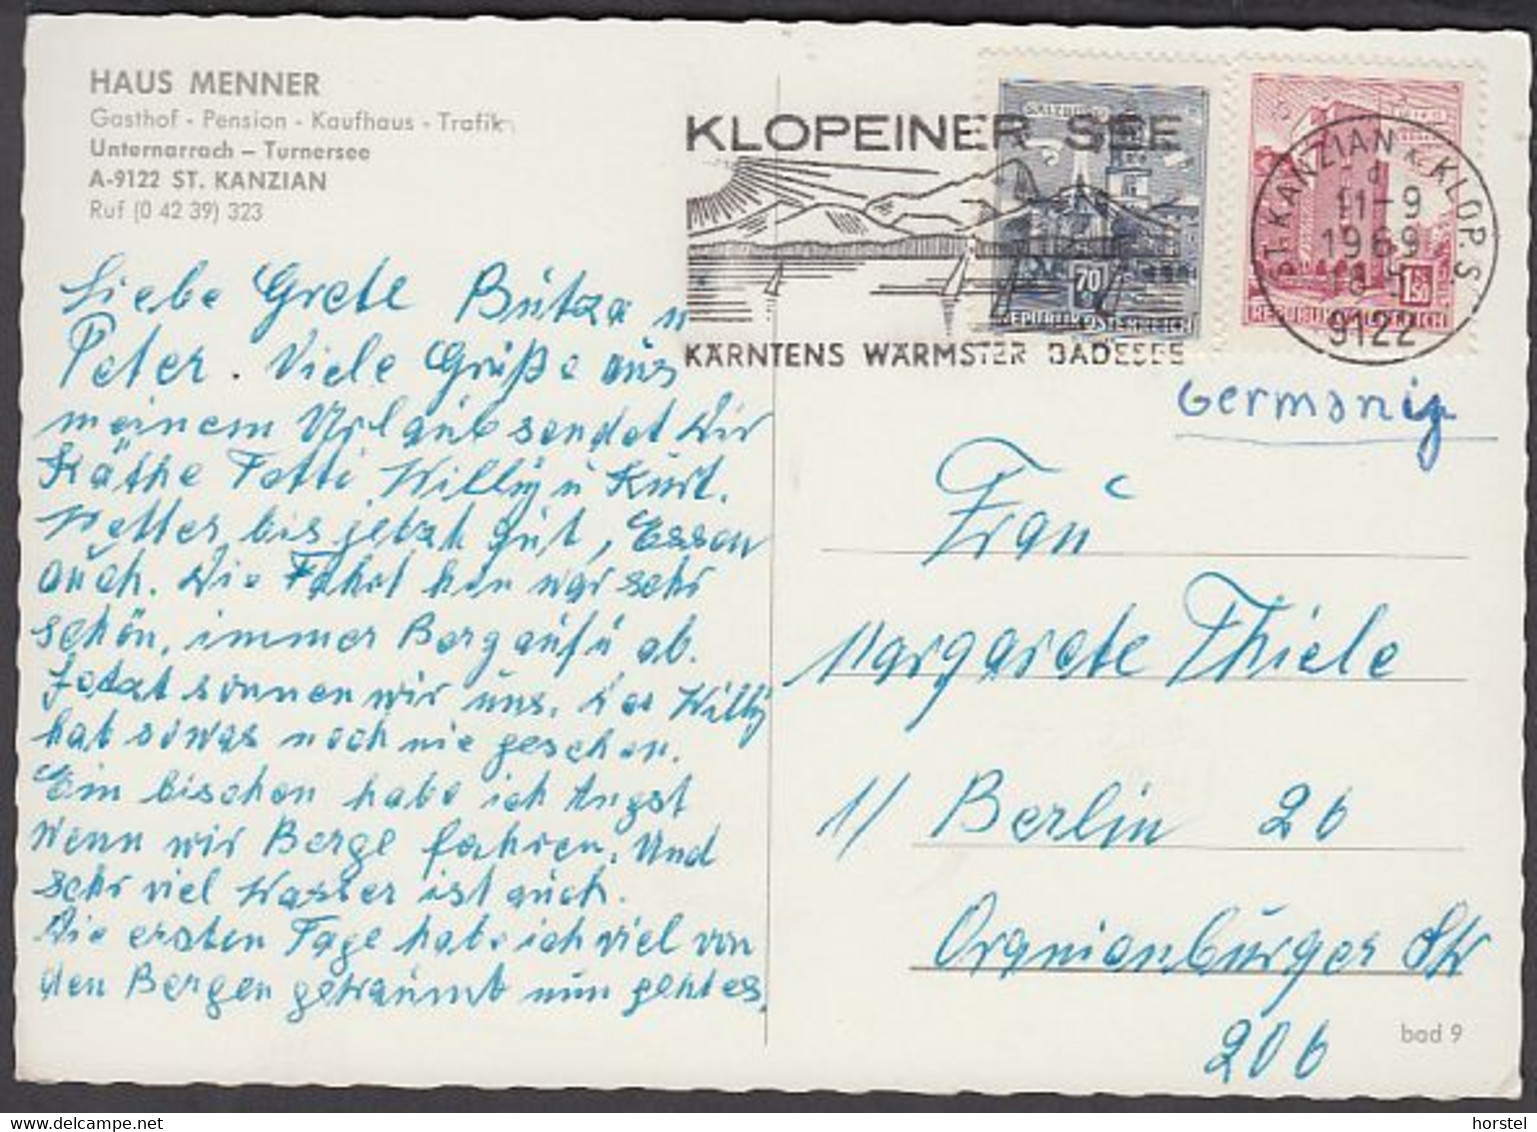 HAUS MENNER
Gasthof - Pension - Kaufhaus - Trafik
Unternarrach – Turnersee
A-9122 ST. KANZIAN
Ruf (0 42 39) 323
Liebe Grete Butza u
Peter. Viele Grüße aus
meinem Urlaub sendet Dir
Käthe Fetti Willy u Kurt.
Wetter bis jetzt gut, Essen
auch. Die Fahrt hin war sehr
schön, immer Berg auf u ab.
Jetzt sonnen wir uns. Das Willy
hat sowas noch nie gesehen.
Ein bischen habe ich Angst
wenn wir Berge fahren. Und
sehr viel Wasser ist auch.
Die ersten Tage habe ich viel von
den Bergen geträumt nun geht es.
KLOPEINER SEE
KÄRNTENS WÄRMSTER BADESEE
SALZBURG
70
REPUBLIK ÖSTERREICH
1.50
REPUBLIK ÖSTERREICH
ST. KANZIAN a. KLOP. S.
11-9
1969
18
9122
Germaniy
Frau
Margarete Thiele
1/ Berlin 26
Oranienburger Str
206
bad 9
horstel
www.delcampe.net